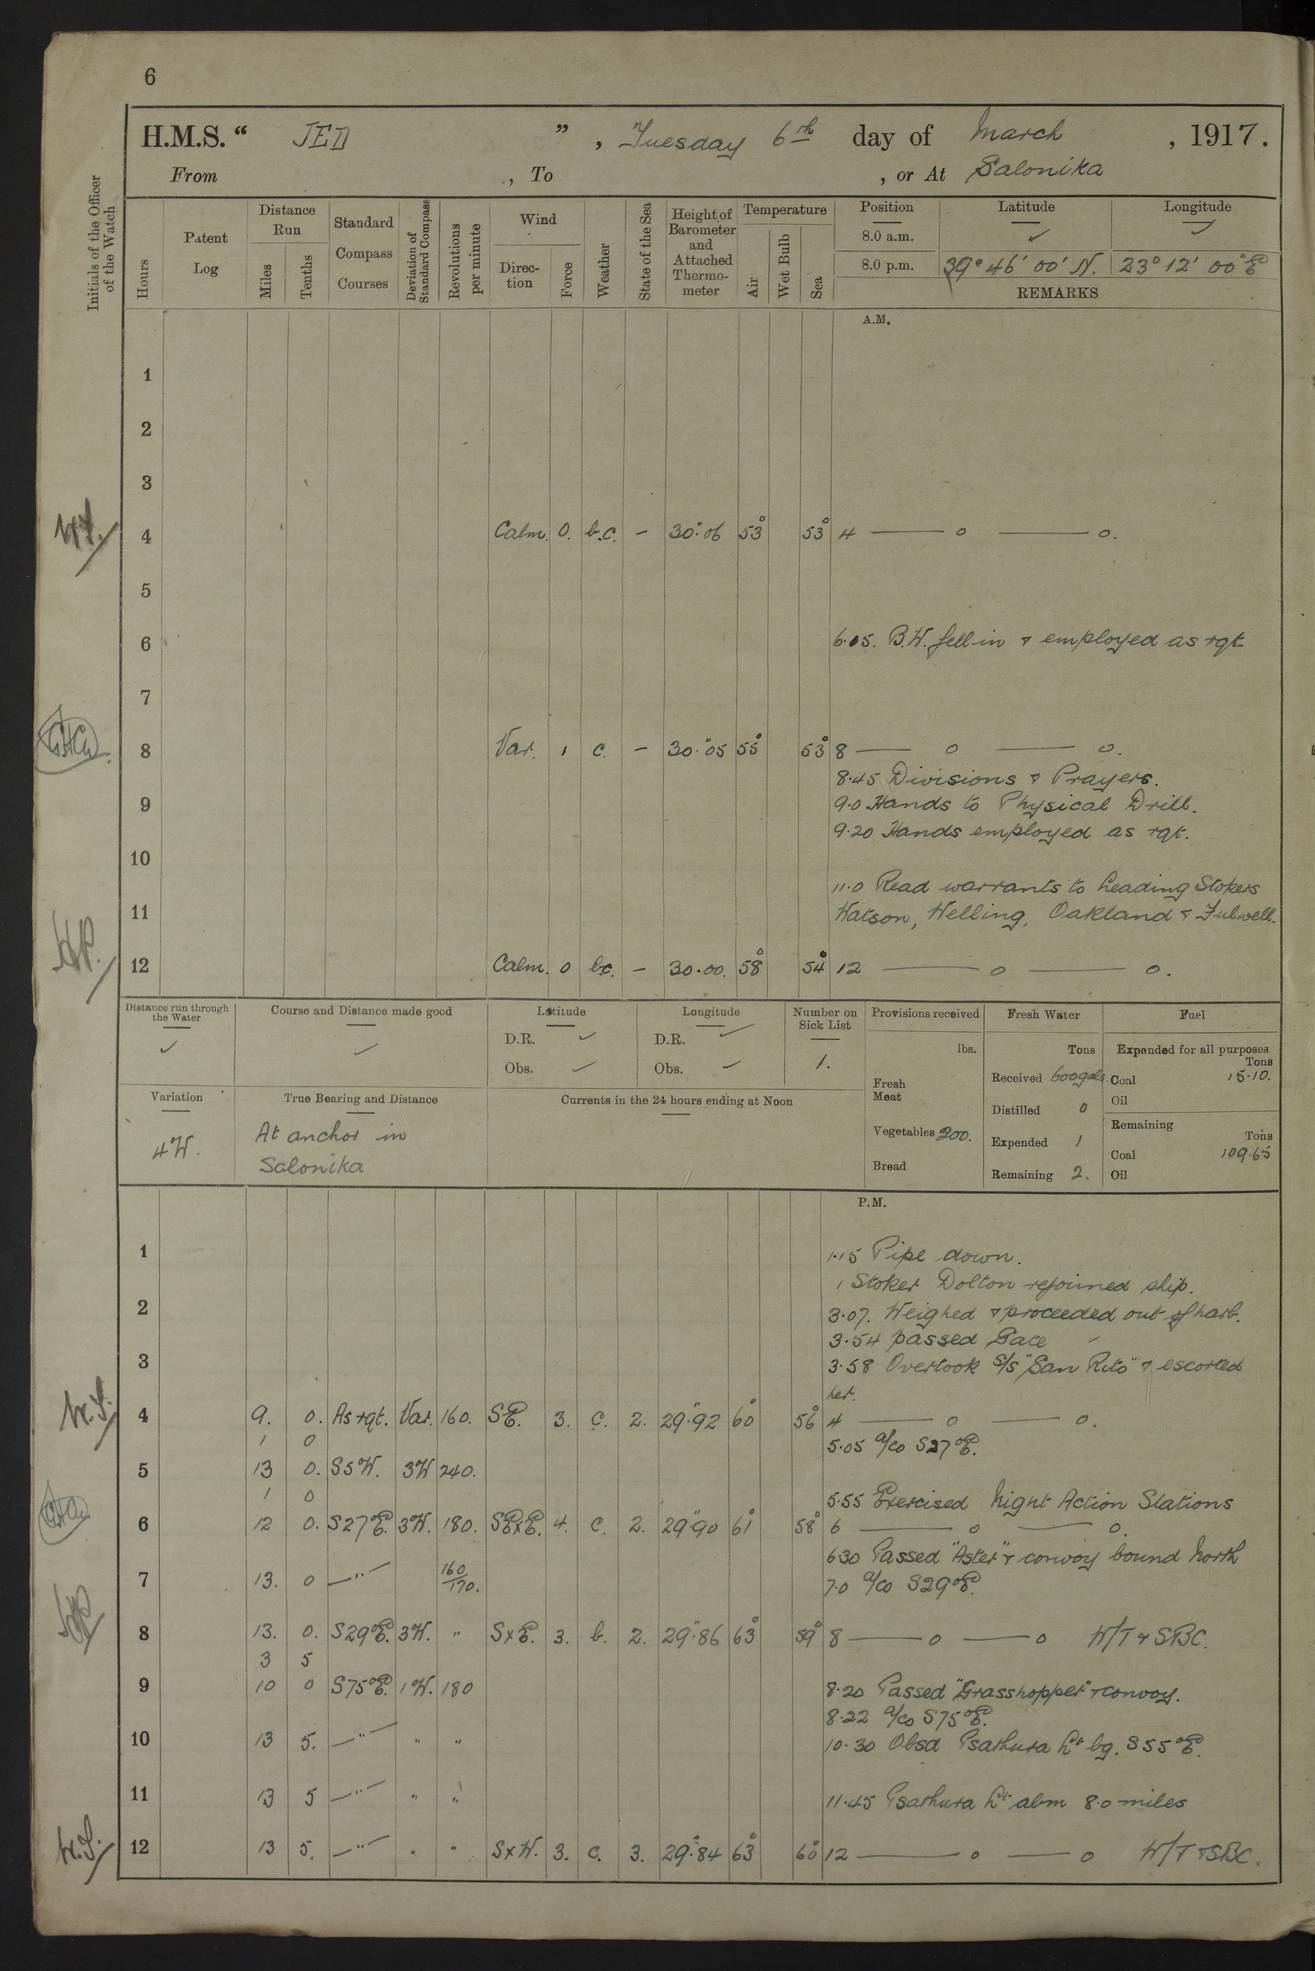 6
H.M.S. " JED " , Tuesday 6th day of March , 1917.
From , To , or At Salonika
Initials of the Officer of the Watch
Hours
Patent Log
Distance Run
Miles
Tenths
Standard Compass Courses
Deviation of Standard Compass
Revolutions per minute
Wind
Direc-tion
Force
Weather
State of the Sea
Height of Barometer and Attached Thermo-meter
Temperature
Air
Wet Bulb
Sea
Position Latitude Longitude
8.0 a.m. ✓ ✓
8.0 p.m. 39° 46' 00' N. 23° 12' 00" E
REMARKS
A.M.
1
2
3
4 Calm. 0. b.c. – 30".06 53° 53° 4 —— o —— o.
5
6 6.05. B.W. fell in & employed as rqt
7
8 Var. 1 c. – 30."05 55° 53° 8 —— o —— o.
8.45 Divisions & Prayers.
9 9.0 Hands to Physical Drill.
9.20 Hands employed as rqt.
10
11.0 Read warrants to Leading Stokers
11 Watson, Welling, Oakland & Fulwell.
12 Calm. 0 b.c. – 30.00. 58° 54° 12 —— o —— o.
Distance run through the Water ✓
Course and Distance made good ✓
Latitude
D.R. ✓
Obs. ✓
Longitude
D.R. ✓
Obs. ✓
Number on Sick List
1.
Provisions received
lbs.
Fresh Meat
Vegetables 200.
Bread
Fresh Water
Tons
Received 600gals.
Distilled 0
Expended 1
Remaining 2.
Fuel
Expended for all purposes
Tons
Coal 15.10.
Oil
Remaining
Tons
Coal 109.65
Oil
Variation
4W.
True Bearing and Distance
At anchor in
Salonika
Currents in the 24 hours ending at Noon
P.M.
1 1.15 Pipe down.
1 Stoker Dolton rejoined ship.
2 3.07. Weighed & proceeded out of harb.
3.54 passed Gate
3 3.58 Overtook S/S "San Rito" & escorted
her.
4 9. 0. As rqt. Var. 160. SE. 3. c. 2. 29."92 60° 56° 4 —— o —— o.
1 0 5.05 a/co S27°E.
5 13 0. S5W. 3W 240.
1 0 5.55 Exercised Night Action Stations
6 12 0. S27°E. 3W. 180. SExE. 4. c. 2. 29"90 61° 58° 6 —— o —— o.
6.30 Passed "Aster" & convoy bound North
7 13. 0 —"— 160/170. 7.0 a/co S29°E.
8 13. 0. S29°E. 3W. " SxE. 3. b. 2. 29"86 63° 59° 8 —— o —— o W/T & SBC.
3 5
9 10 0 S75°E. 1W. 180 8.20 Passed "Grasshopper" & convoy.
8.22 a/co S75°E.
10 13 5. —"— " " 10.30 Obsd Psathura Lt bg. S55°E.
11 13 5 —"— " " 11.45 Psathura Lt abm 8.0 miles
12 13 5. —"— " " SxW. 3. c. 3. 29".84 63° 60° 12 —— o —— o W/T & SBC.